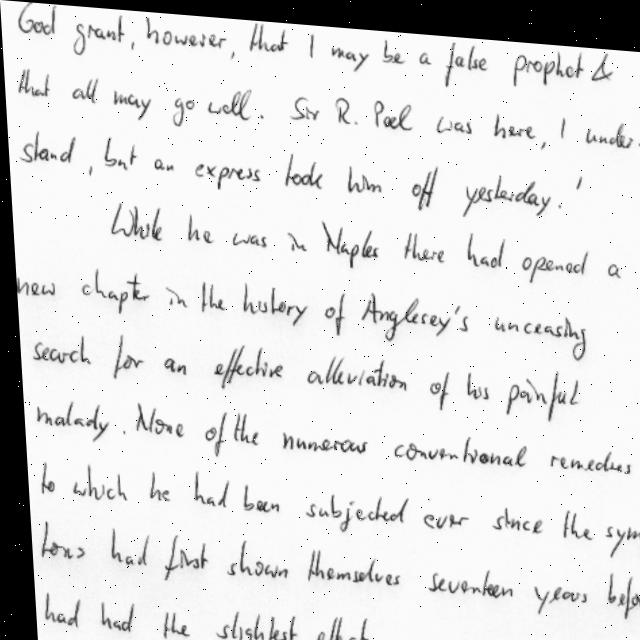 God grant, however, that I may be a false prophet &
that all may go well. Sir R. Peel was here, I under-
stand, but an express took him off yesterday.'
While he was in Naples there had opened a
new chapter in the history of Anglesey's unceasing
search for an effective alleviation of his painful
malady. None of the numerous conventional remedies
to which he had been subjected ever since the sym
toms had first shown themselves seventeen years befo
had had the slightest effect